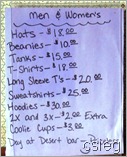 Men & Women's
Hats - $18.00
Beanies - $10.00
Tanks - $15.00
T-Shirts - $18.00
Long Sleeve T's - $20.00
Sweatshirts - $25.00
Hoodies - $30.00
2X and 3X - $2.00 Extra
Coolie Cups - $8.00
Day at Desert bar -
gsleg